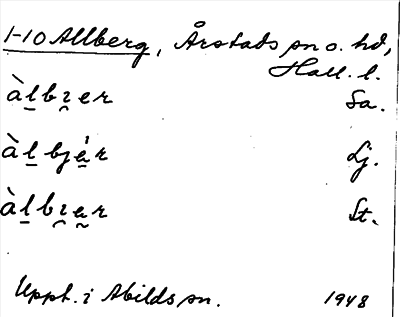 1-10 Allberg, Årstads sn o. hd,
Hall. l.
àl̠bɪ̯er Sa.
àl̠bjá̠r Lj.
àl̠bɪ̯a̰r St.
Uppt. i Abilds sn. 1948